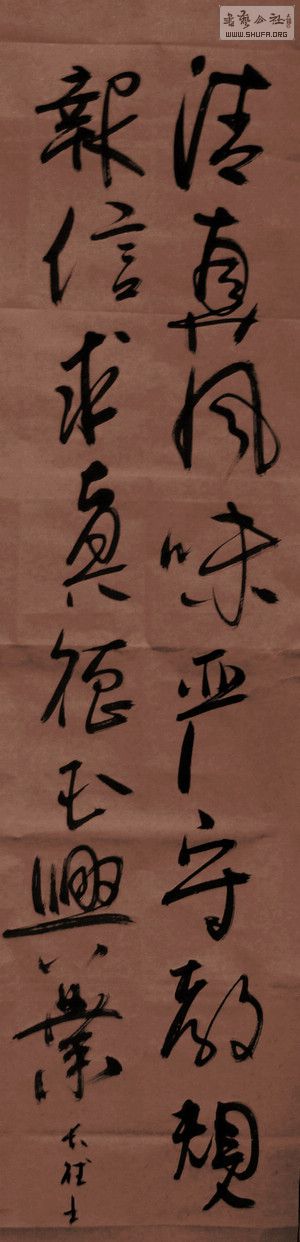 書藝公社
WWW.SHUFA.ORG
清真风味严守教規
報信求真德興業